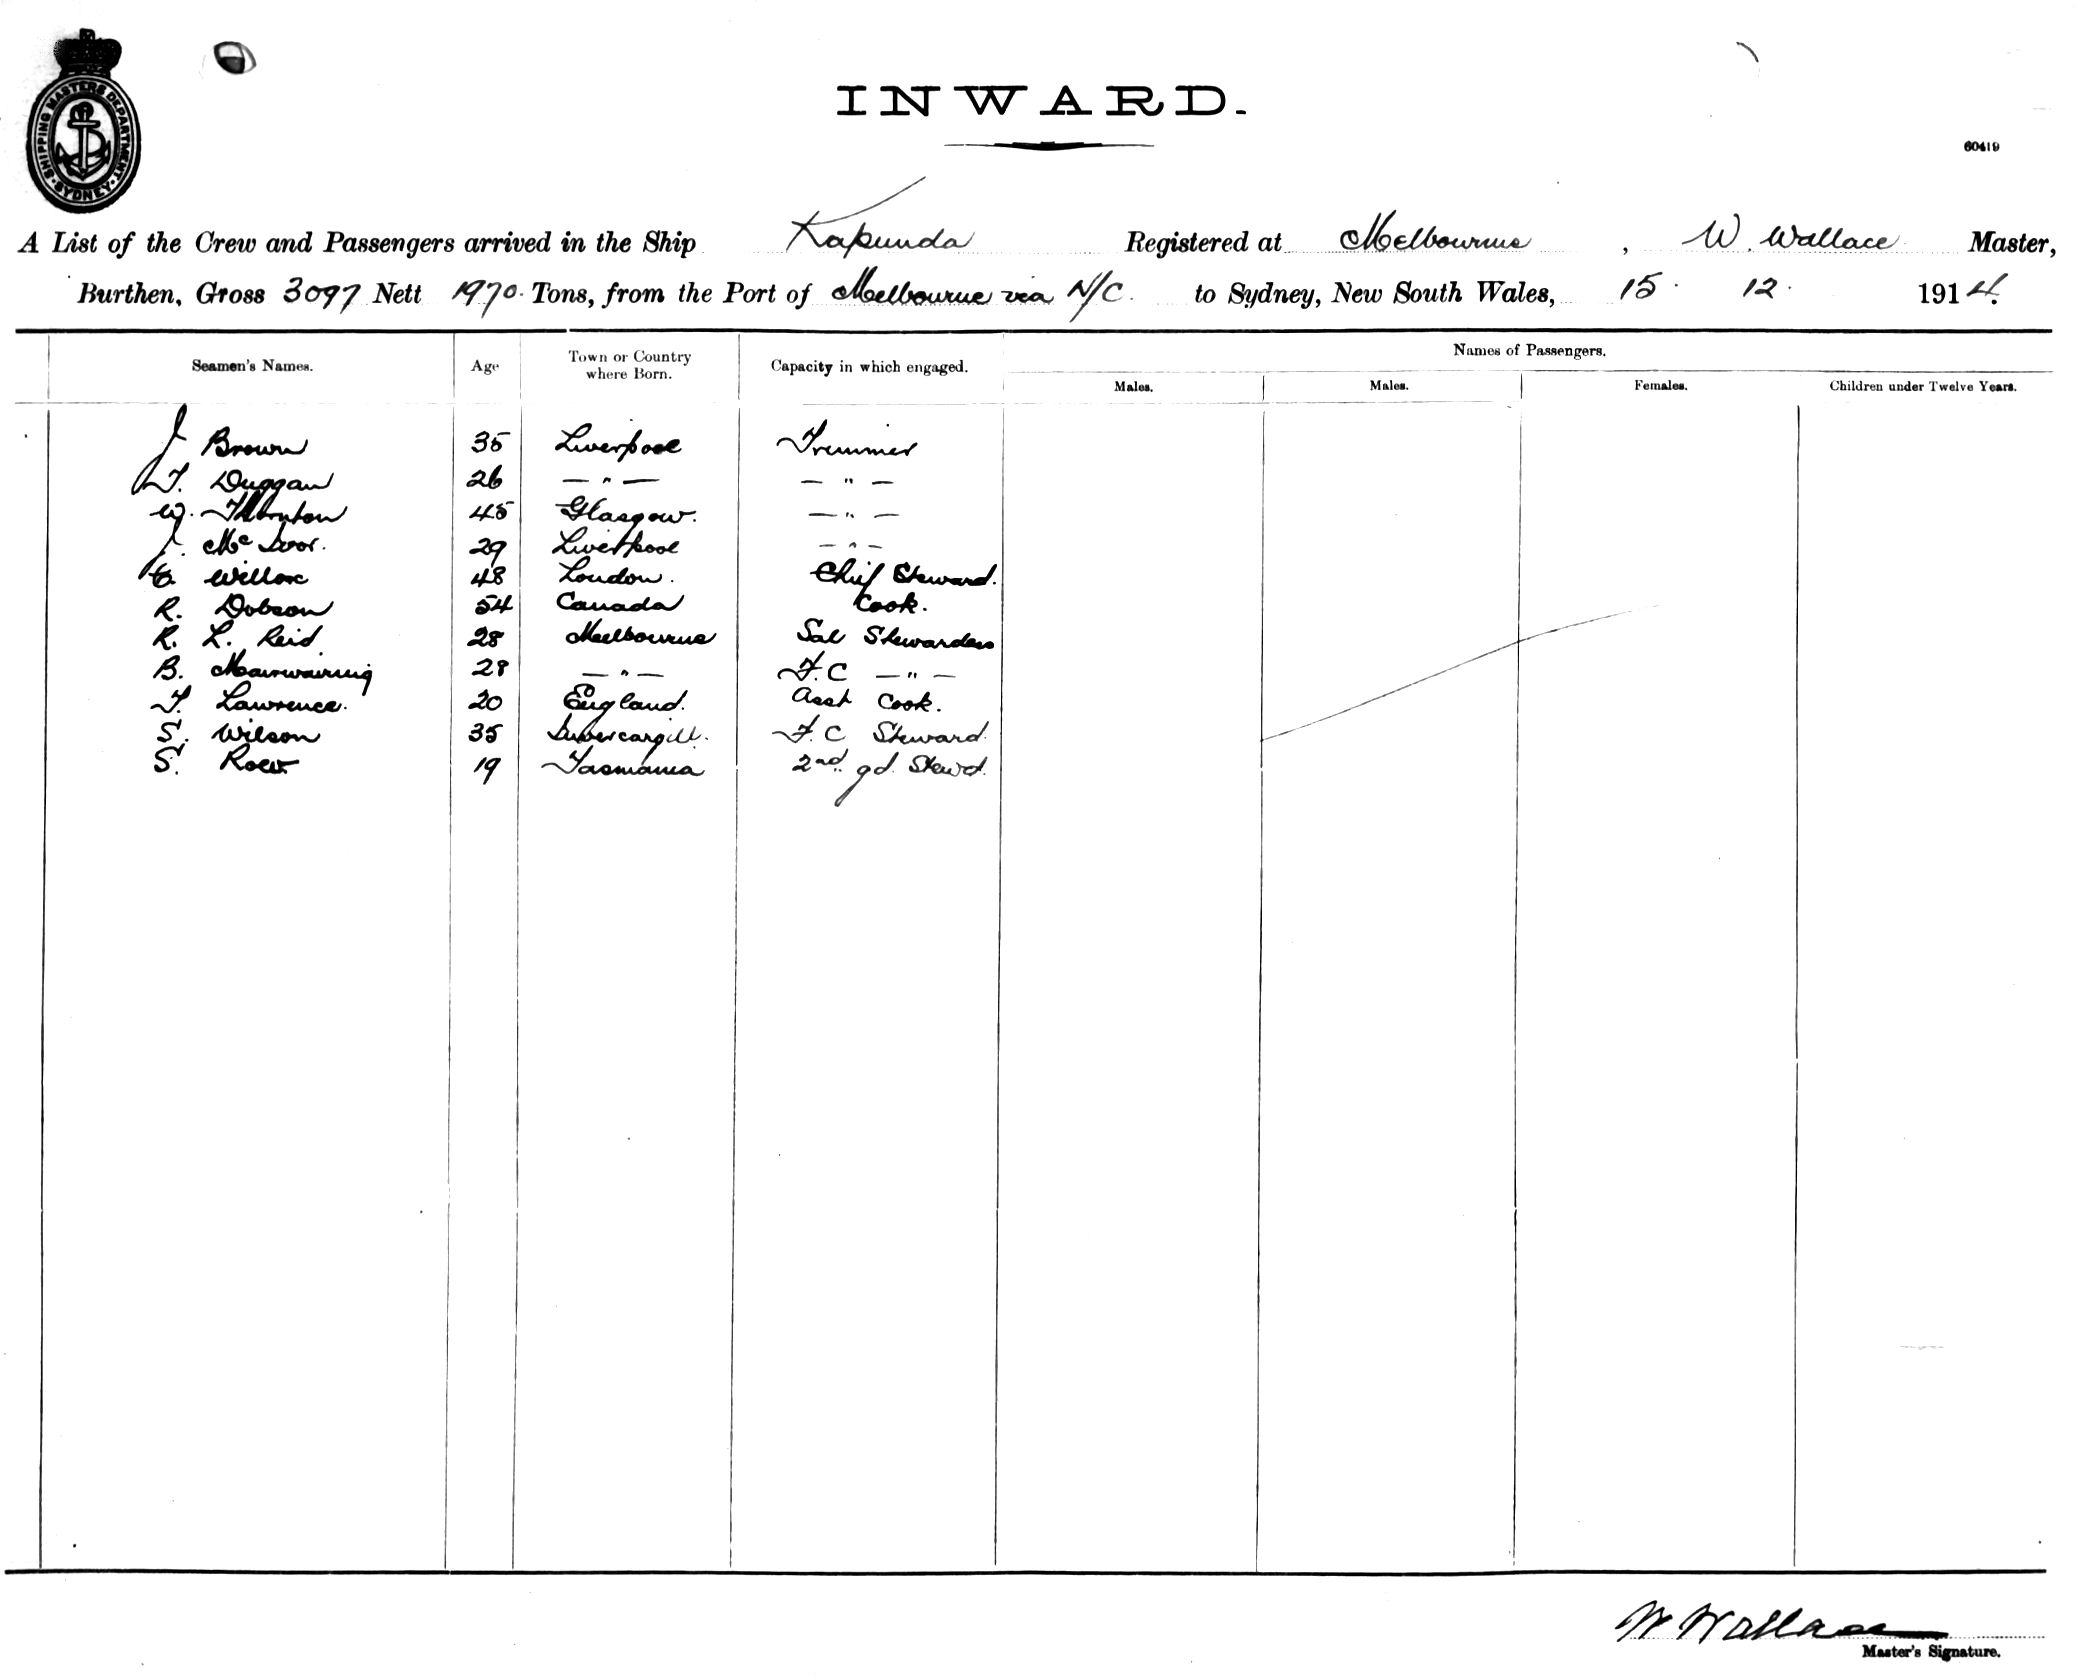 SHIPPING MASTERS DEPARTMENT
SYDNEY
INWARD.
60419
A List of the Crew and Passengers arrived in the Ship Kapunda Registered at Melbourne, W. Wallace Master,
Burthen, Gross 3097 Nett 1970. Tons, from the Port of Melbourne via N/C. to Sydney, New South Wales, 15. 12. 1914.
Seamen's Names. Age Town or Country where Born. Capacity in which engaged. Names of Passengers.
Males. Males. Females. Children under Twelve Years.
J Brown 35 Liverpool Trimmer
T. Duggan 26 — " — — " —
W. Thornton 45 Glasgow. — " —
J. McIvor. 29 Liverpool — " —
48 London. Chief Steward.
R. Dobson 54 Canada Cook.
R. L. Reid 28 Melbourne Sal Stewardess
B. Mainwairing 28 — " — F.C — " —
T. Lawrence. 20 England. Asst Cook.
S. Wilson 35 Invercargill. F.C Steward.
S. 19 Tasmania 2nd gd. Stewd.
W Wallace
Master's Signature.